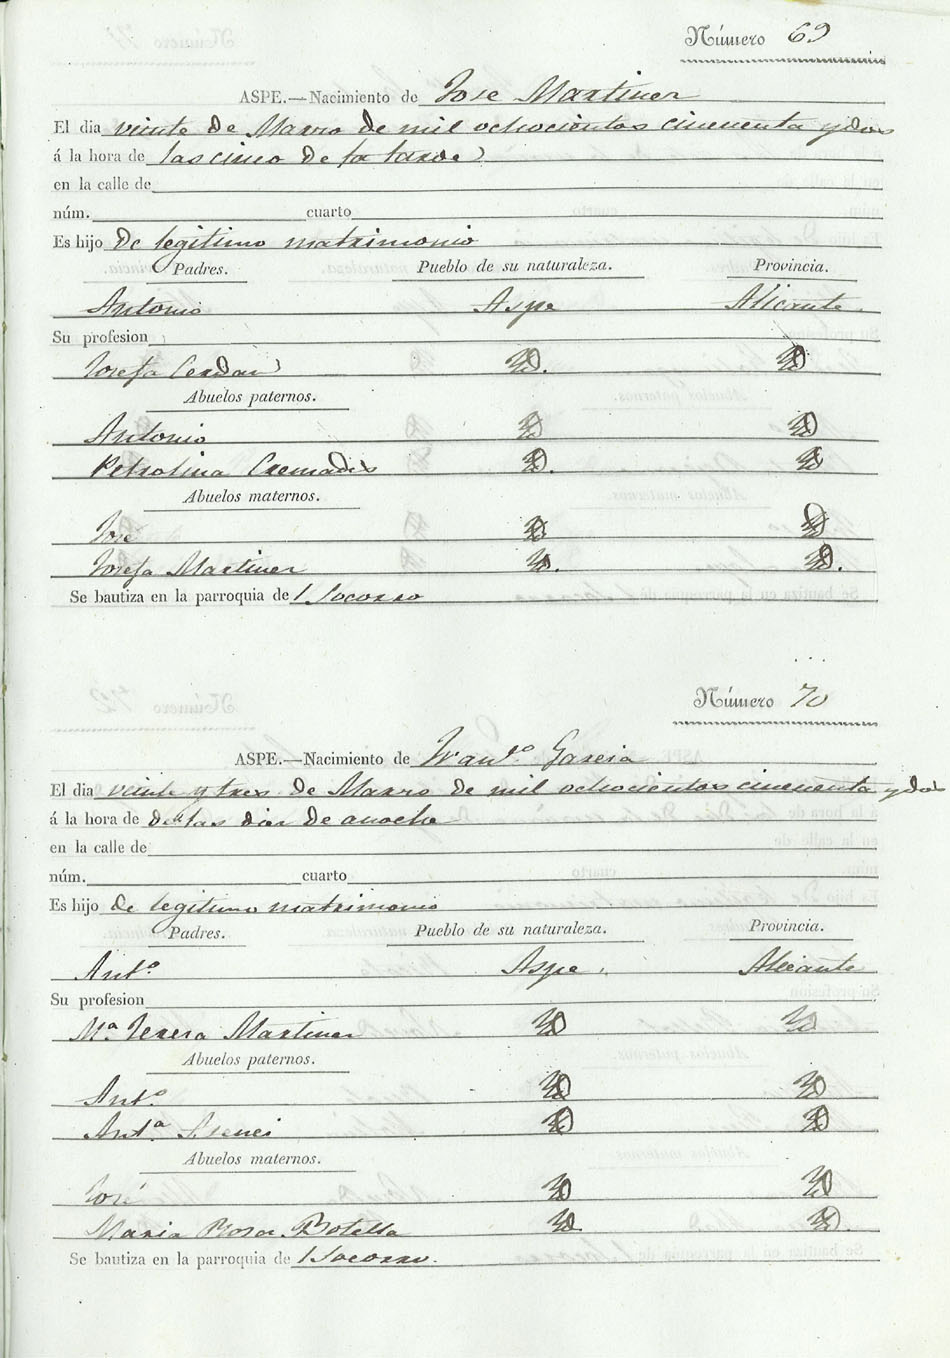 Número 69
ASPE.—Nacimiento de Jose Martinez
El dia veinte de Marzo de mil ochocientos cincuenta y dos
á la hora de las cinco de la tarde
en la calle de
núm. cuarto
Es hijo de legitimo matrimonio
Padres. Pueblo de su naturaleza. Provincia.
Antonio Aspe Alicante
Su profesion
Josefa Cerdan
Abuelos paternos.
Antonio
Petrolina Cremades
Abuelos maternos.
José
Josefa Martinez
Se bautiza en la parroquia del Socorro
Número 70
ASPE.—Nacimiento de Garcia
El dia veinte y tres de Marzo de mil ochocientos cincuenta y dos
á la hora de de las diez de anoche
en la calle de
núm. cuarto
Es hijo de legitimo matrimonio
Padres. Pueblo de su naturaleza. Provincia.
Antº Aspe Alicante
Su profesion
Mª Teresa Martinez
Abuelos paternos.
Antº
Antª
Abuelos maternos.
José
Maria Rosa Botella
Se bautiza en la parroquia de l Socorro.